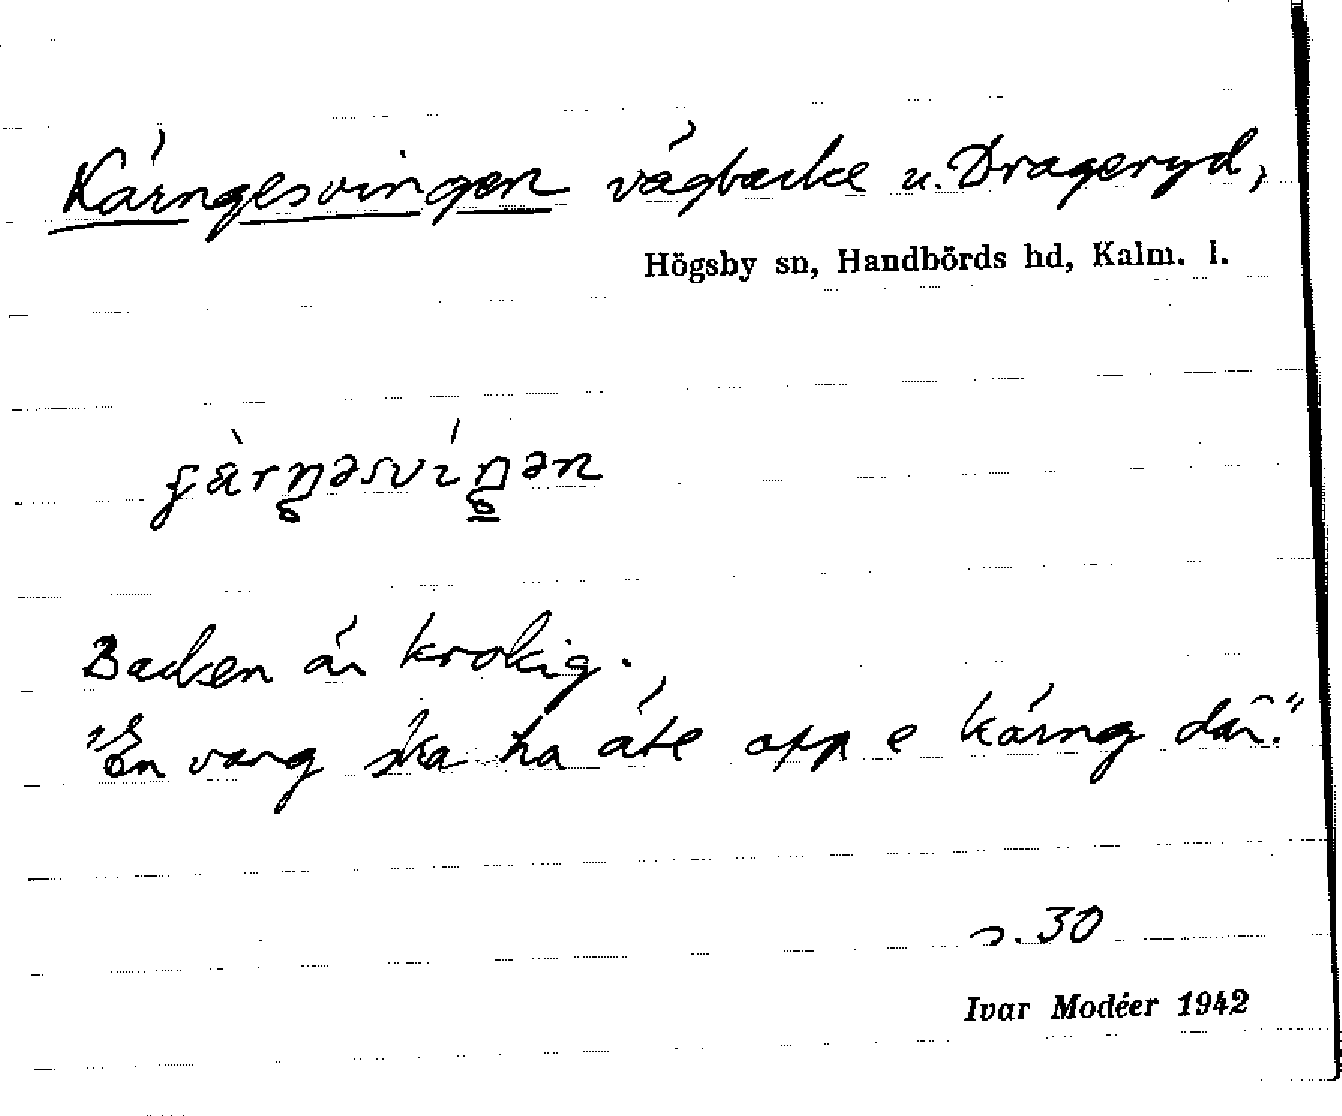 Kärngesvingen vägbacke u. Drageryd,
Högsby sn, Handbörds hd, Kalm. l.
Backen är krokig.
"En varg ska ha äte opp e kärng där."
s. 30
Ivar Modéer 1942